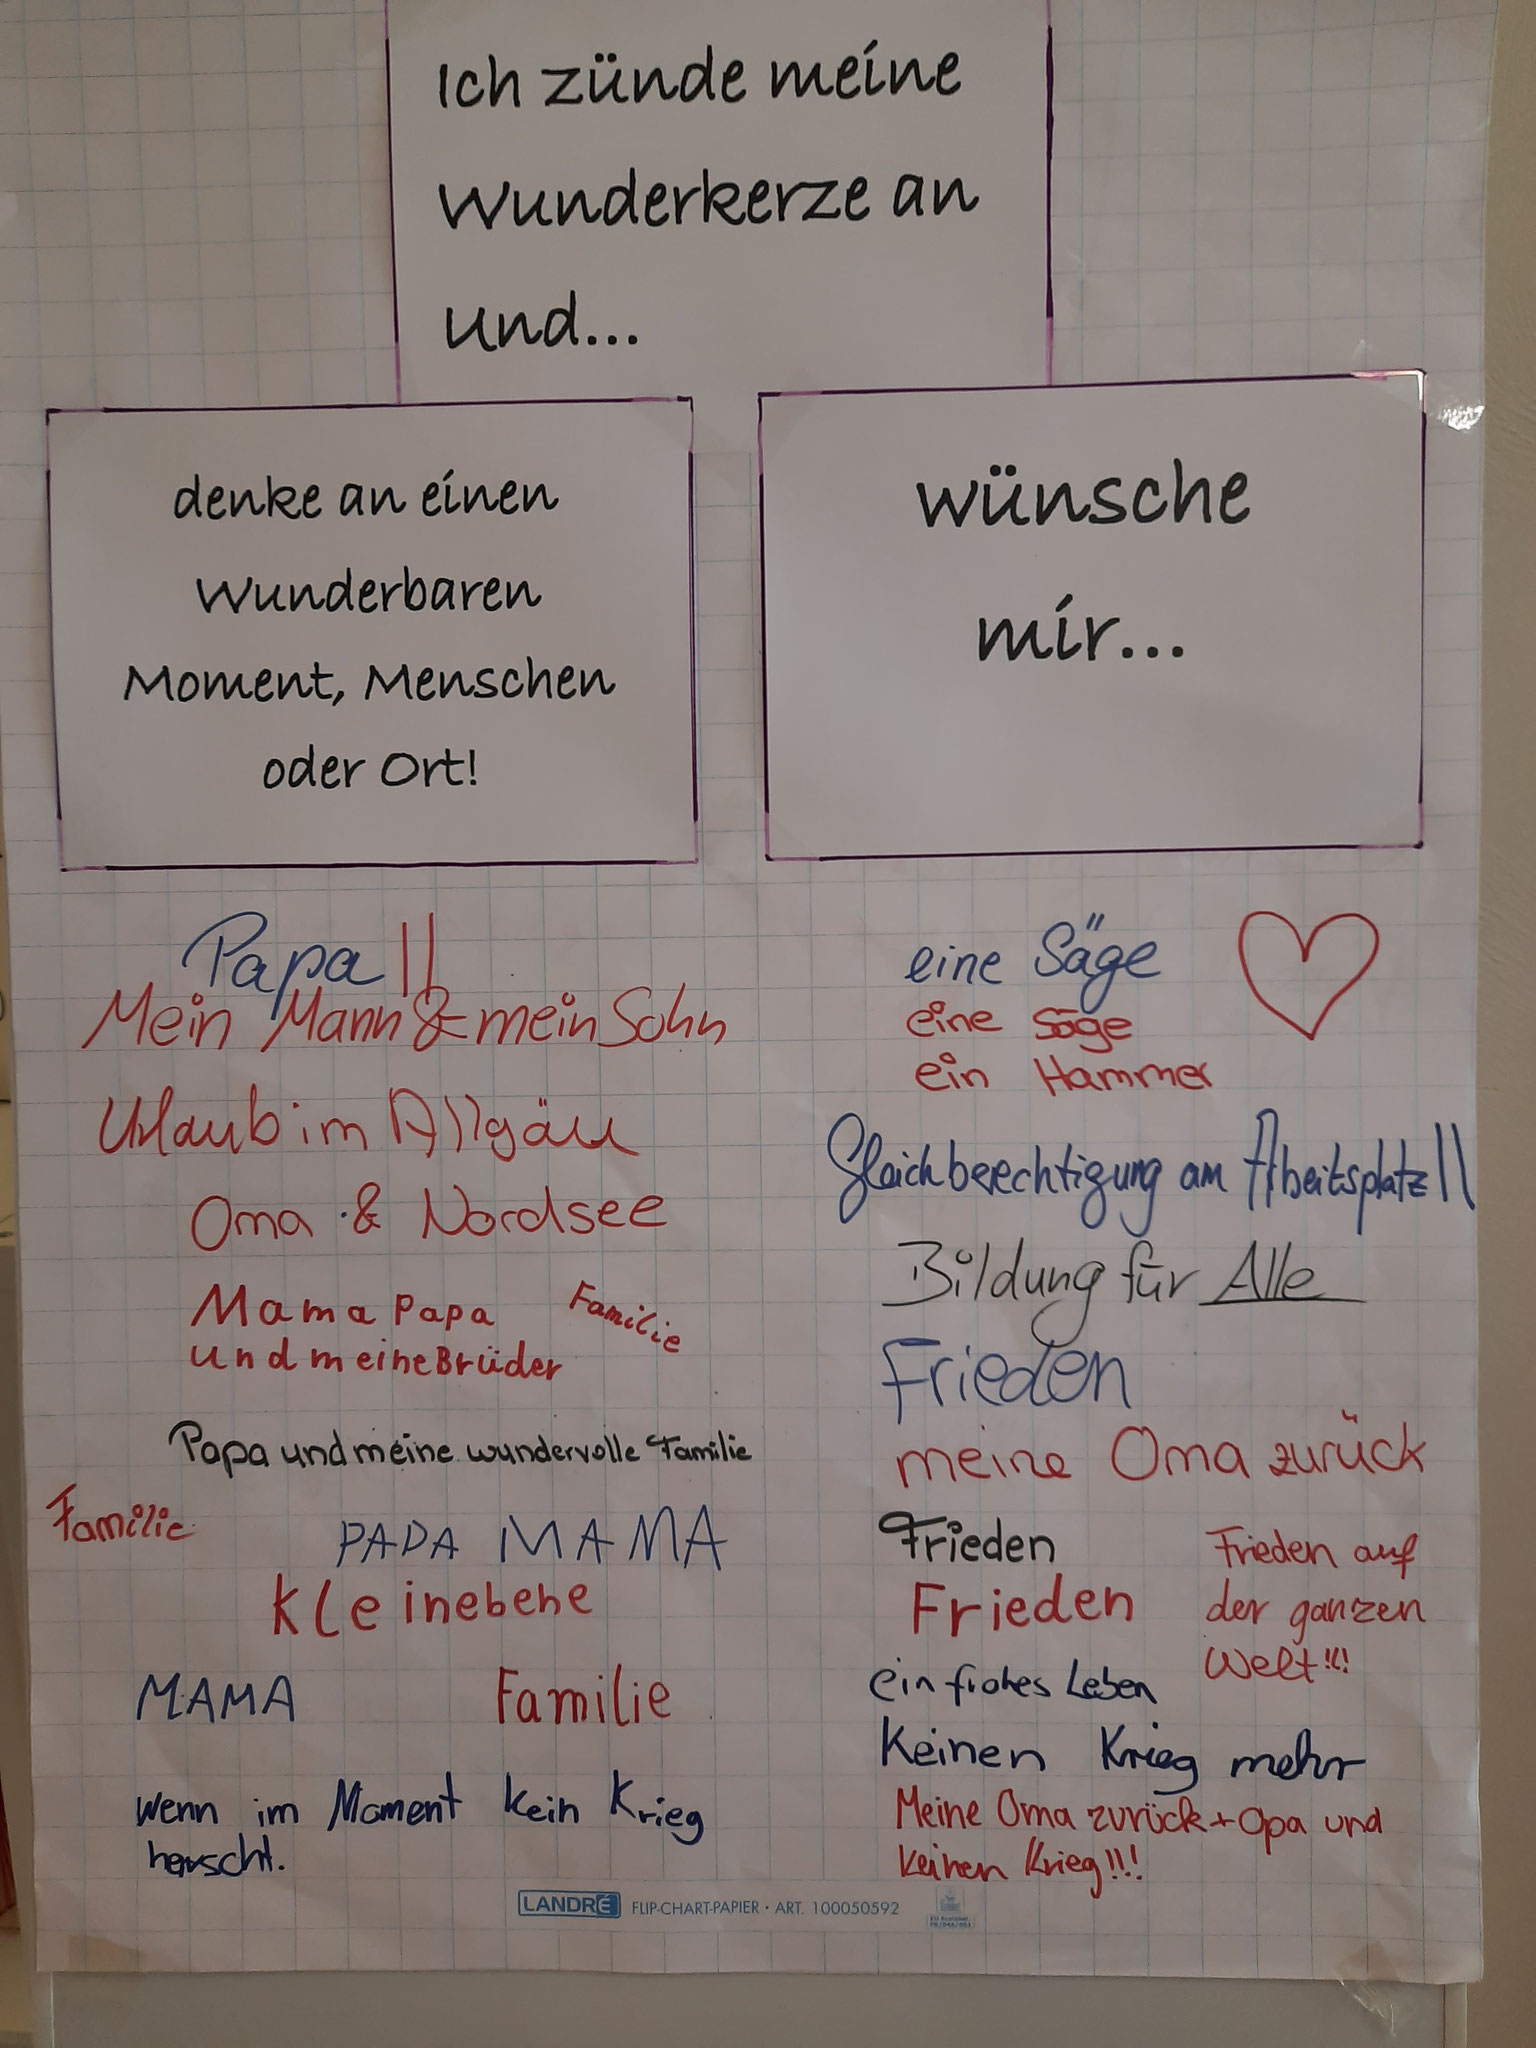 Ich zünde meine
Wunderkerze an
und...
denke an einen
Wunderbaren
Moment, Menschen
oder Ort!
wünsche
mir...
Papa!!
Mein Mann & mein Sohn
Urlaub im Allgäu
Oma & Nordsee
Mama Papa
und meine Brüder
Familie
Papa und meine wundervolle Familie
Familie
PAPA MAMA
Kleinebehe
MAMA
Familie
wenn im Moment kein Krieg
herrscht.
eine Säge
eine Säge
ein Hammer
Gleichberechtigung am Arbeitsplatz!!
Bildung für Alle
Frieden
meine Oma zurück
Frieden
Frieden
Frieden auf
der ganzen
Welt!!!
ein frohes Leben
Keinen Krieg mehr
Meine Oma zurück + Opa und
keinen Krieg!!!
LANDRÉ FLIP-CHART-PAPIER · ART. 100050592